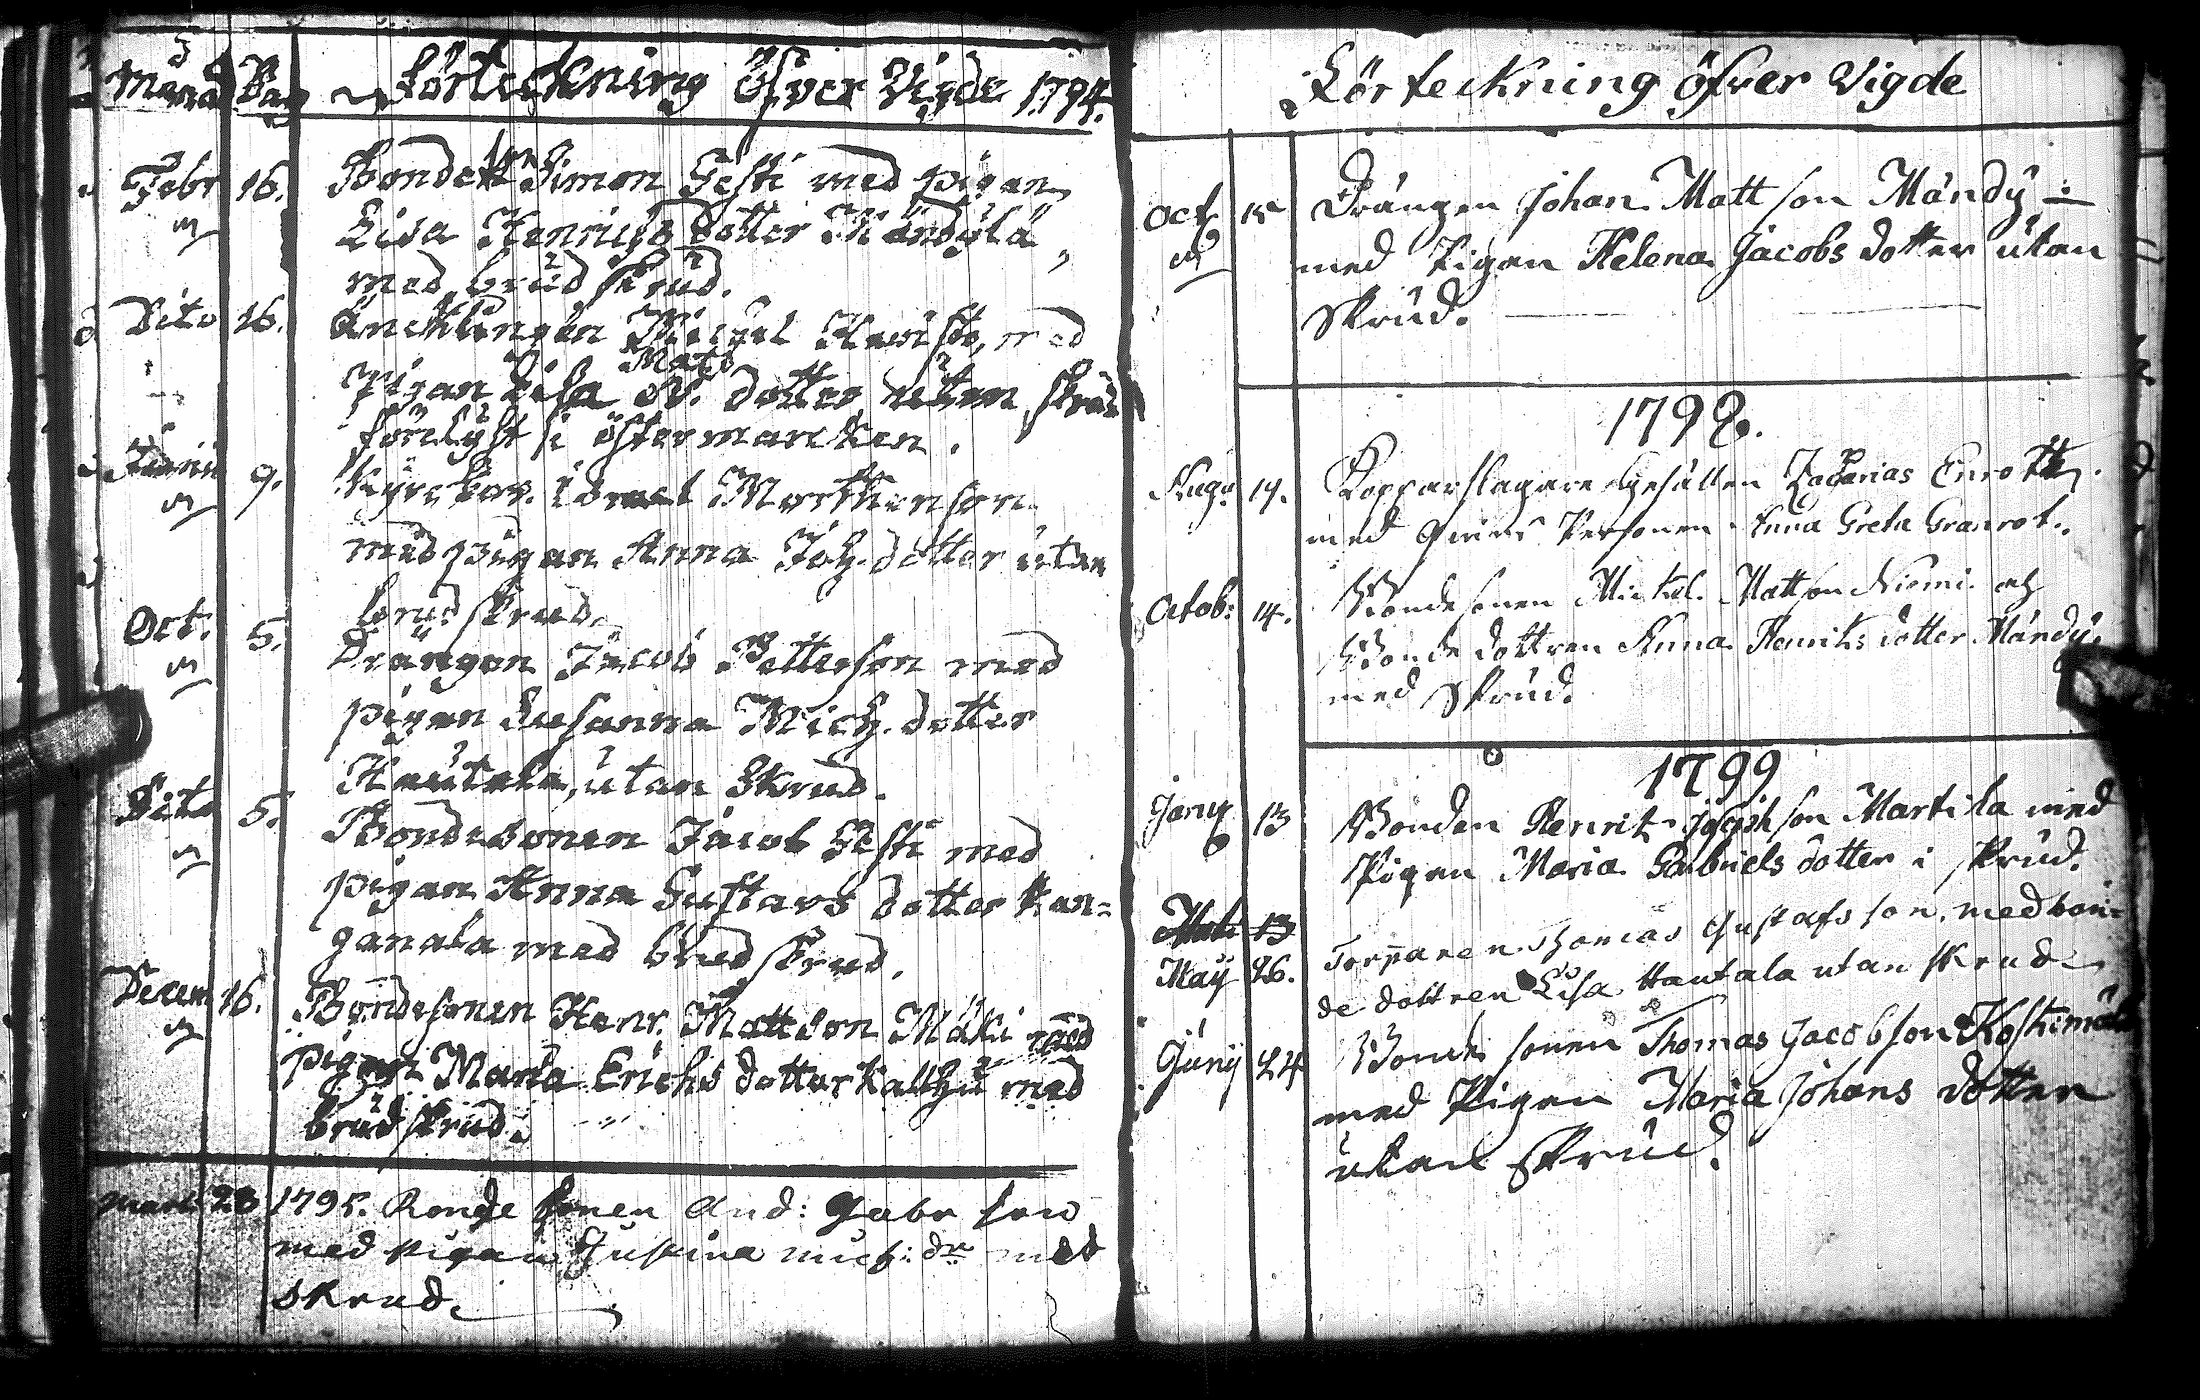 Månad Dag Förteckning öfver Vigde 1794.
Febr 16. Bonden Simon Gesti med pigan
Lisa Henrichs dotter Mändylä,
med brudskrud.
Dito 16. Änchlingen Michel Havisto, med
Mats
Pigan Lisa N. dotter utan skrud
förelyst i östermarcken.
Junii 9. Kyrckov. Israel Morthenson
med pigan Anna Joh. dotter utan
brudskrud.
Oct. 5. Drängen Jacob Petterson med
pigan Susanna Mich. dotter
Hautala, utan Skrud.
Dito 5. Bondesonen Jacob Gesti med
pigan Anna Gustavs dotter Kan=
ganala med brudskrud.
Decem 16. Bondesonen Henr. Mattson Mäki med
pigan Maria Erichs dotter Kallhu med
brudskrud.
Mart. 23 1795. Bonde sonen And: Gabr son
med pigan Justina mich: dr med
skrud.
Förteckning öfver Vigde
Oct 15 Drängen Johan Matt son Mändy=
med Pigan Helena Jacobs dotter utan
Skrud.
1798.
Aug. 19. Kopparslagare Gesällen Zacharias Enroth
med Qvins Personen Anna Greta Granrot.
Octob: 14. Bondesonen Mickel Mattson Niemi och
Bonde dottren Anna Henriks dotter Mändy.
med Skrud.
1799
Janu 13 Bonden Henrik Josephson Martila med
Pigan Maria Gabriels dotter i skrud.
13
May 26. Torparen Thomas Gustafs son, med bon=
de dottren Lisa Hautala utan skrud
Junij 24 Bonde sonen Thomas Jacobson Koskimäki
med Pigan Maria Johans dotter
utan Skrud.